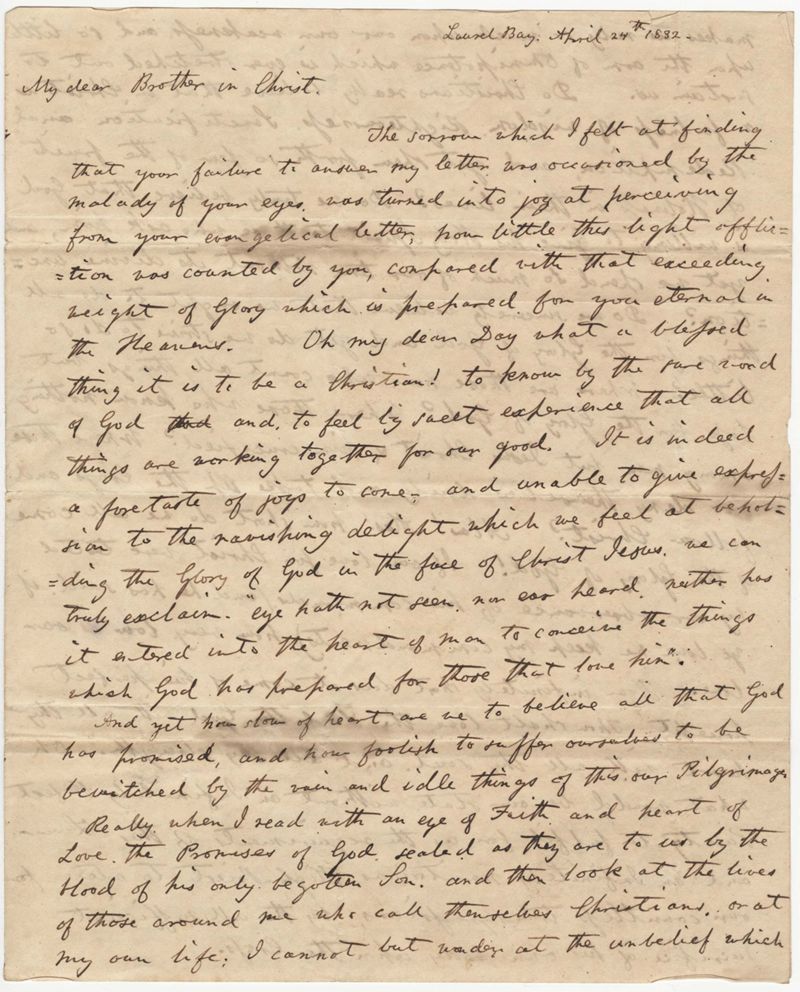 Laurel Bay. April 24th 1832.
My dear Brother in Christ.
The sorrow which I felt at finding
that your failure to answer my letter was occasioned by the
malady of your eyes, was turned into joy at perceiving
from your evangelical letter, how little this light afflic=
=tion was counted by you, compared with that exceeding
weight of Glory which is prepared for you eternal in
the Heavens. Oh my dear Day what a blessed
thing it is to be a Christian! to know by the sure word
of God and, to feel by sweet experience that all
things are working together for our good. It is indeed
a foretaste of joys to come, and unable to give expres=
sion to the ravishing delight which we feel at behol=
=ding the Glory of God in the face of Christ Jesus. we can
truly exclaim. "eye hath not seen, nor ear heard, neither has
it entered into the heart of man to conceive the things
which God has prepared for those that love him".
And yet how slow of heart are we to believe all that God
has promised, and how foolish to suffer ourselves to be
bewitched by the vain and idle things of this our Pilgrimage
Really when I read with an eye of Faith and heart of
Love, the Promises of God, sealed as they are to us by the
blood of his only begotten Son. and then look at the lives
of those around me who call themselves Christians, or at
my own life; I cannot but wonder at the unbelief which